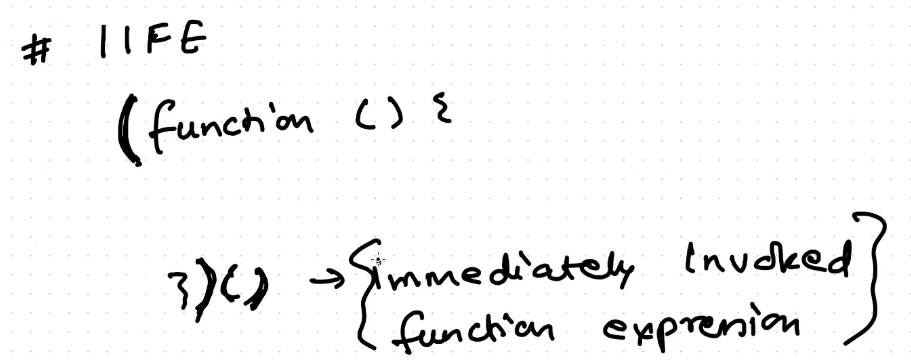 # IIFE
(function () {
})() → {immediately invoked
function expression}